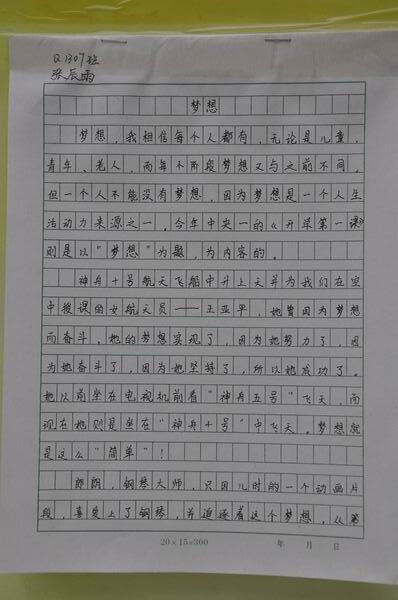 Q1307班
张辰雨
梦想
梦想，我相信每个人都有，无论是儿童，
青年、老人，而每个阶段梦想又与之前不同。
但一个人不能没有梦想，因为梦想是一个人生
活动力来源之一。今年中央一的《开学第一课》
则是以“梦想”为题，为内容的。
神舟十号航天飞船中升上天并为我们在空
中授课的女航天员——王亚平，她曾因为梦想
而奋斗。她的梦想实现了，因为她努力了，因
为她奋斗了，因为她坚持了，所以她成功了。
她以前坐在电视机前看“神舟五号”飞天，而
现在她则是坐在“神舟十号”中飞天。梦想就
是这么“简单”！
郎朗，钢琴大师，只因儿时的一个动画片
段，喜爱上了钢琴，并追逐着这个梦想，从第
20×15=300 年 月 日